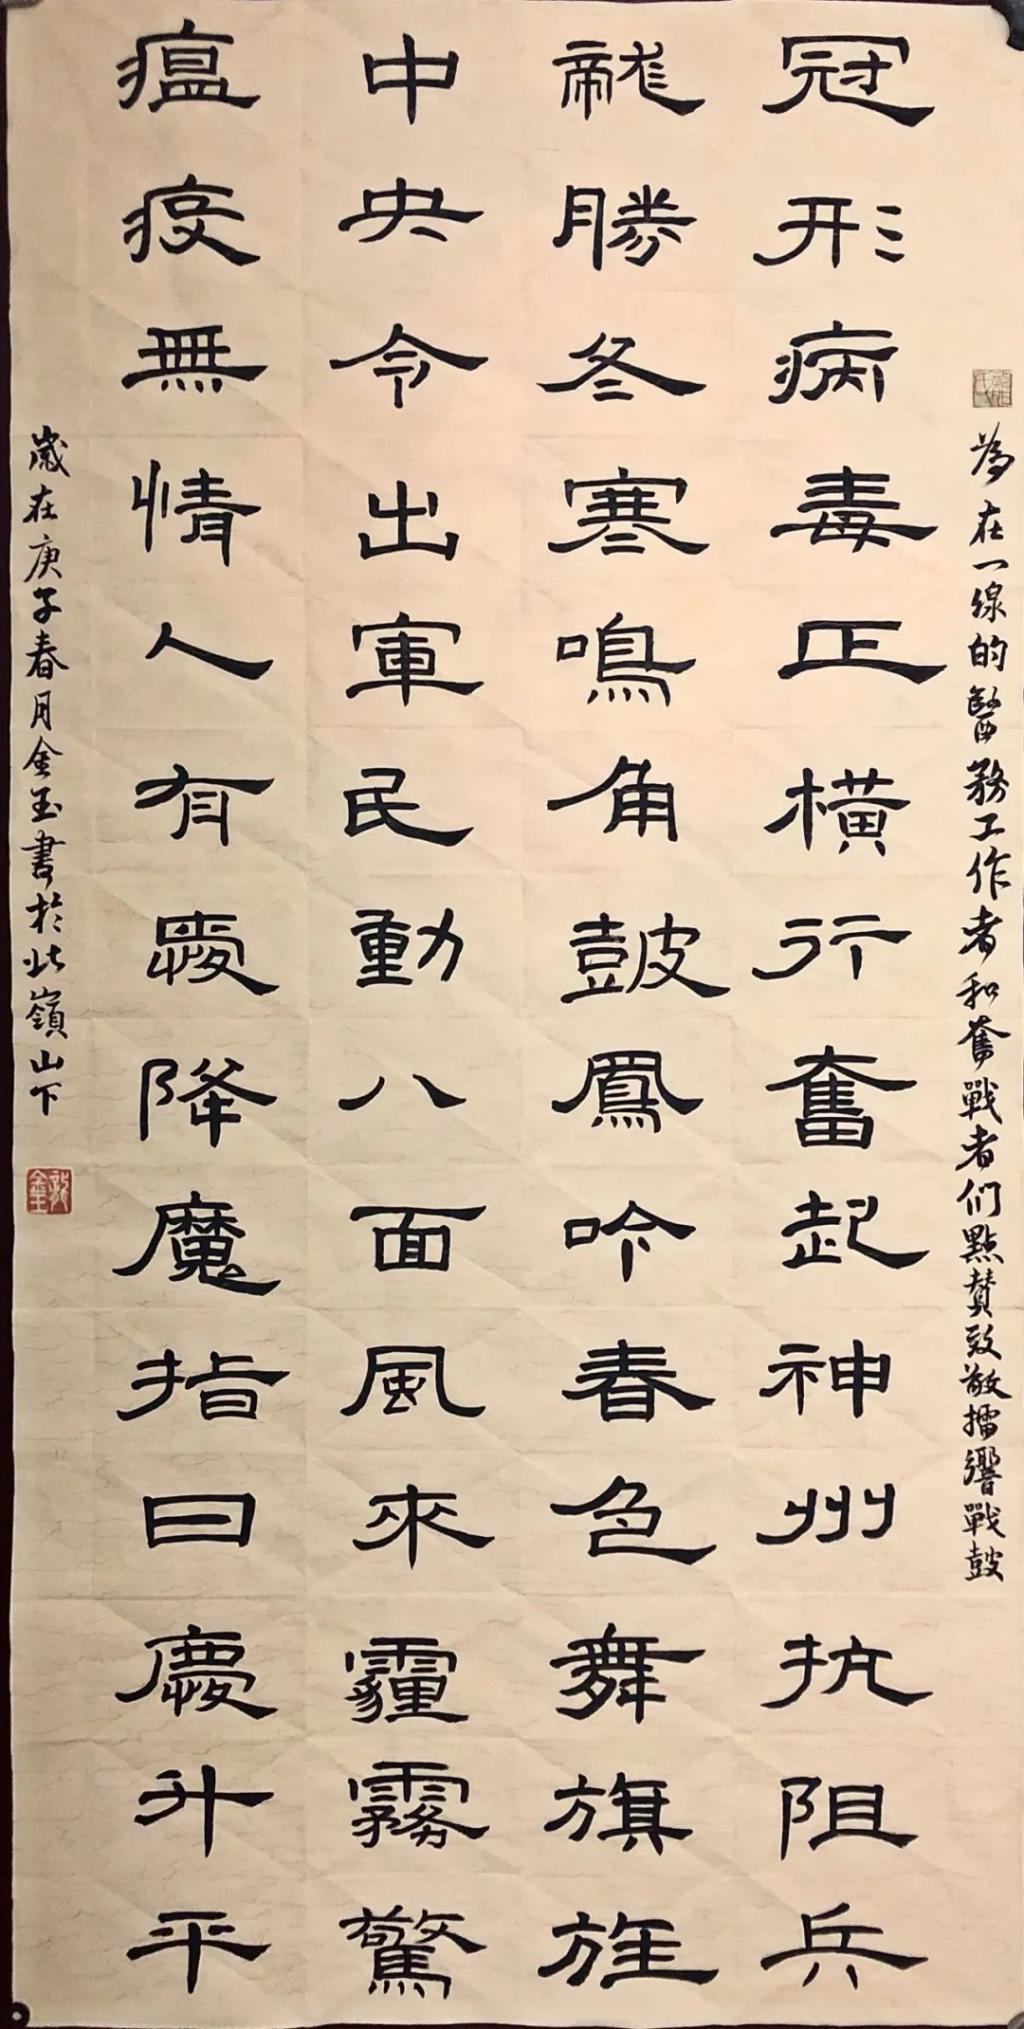 為在一線的醫務工作者和奮戰者們點贊致敬擂響戰皷
冠形病毒正橫行奮起神州抗阻兵
龍勝冬寒鳴角皷鳳吟春色舞旗旌
中央令出軍民動八面風來霾霧驚
瘟疫無情人有愛降魔指日慶升平
歲在庚子春月金玉書於北嶺山下
龍金玉